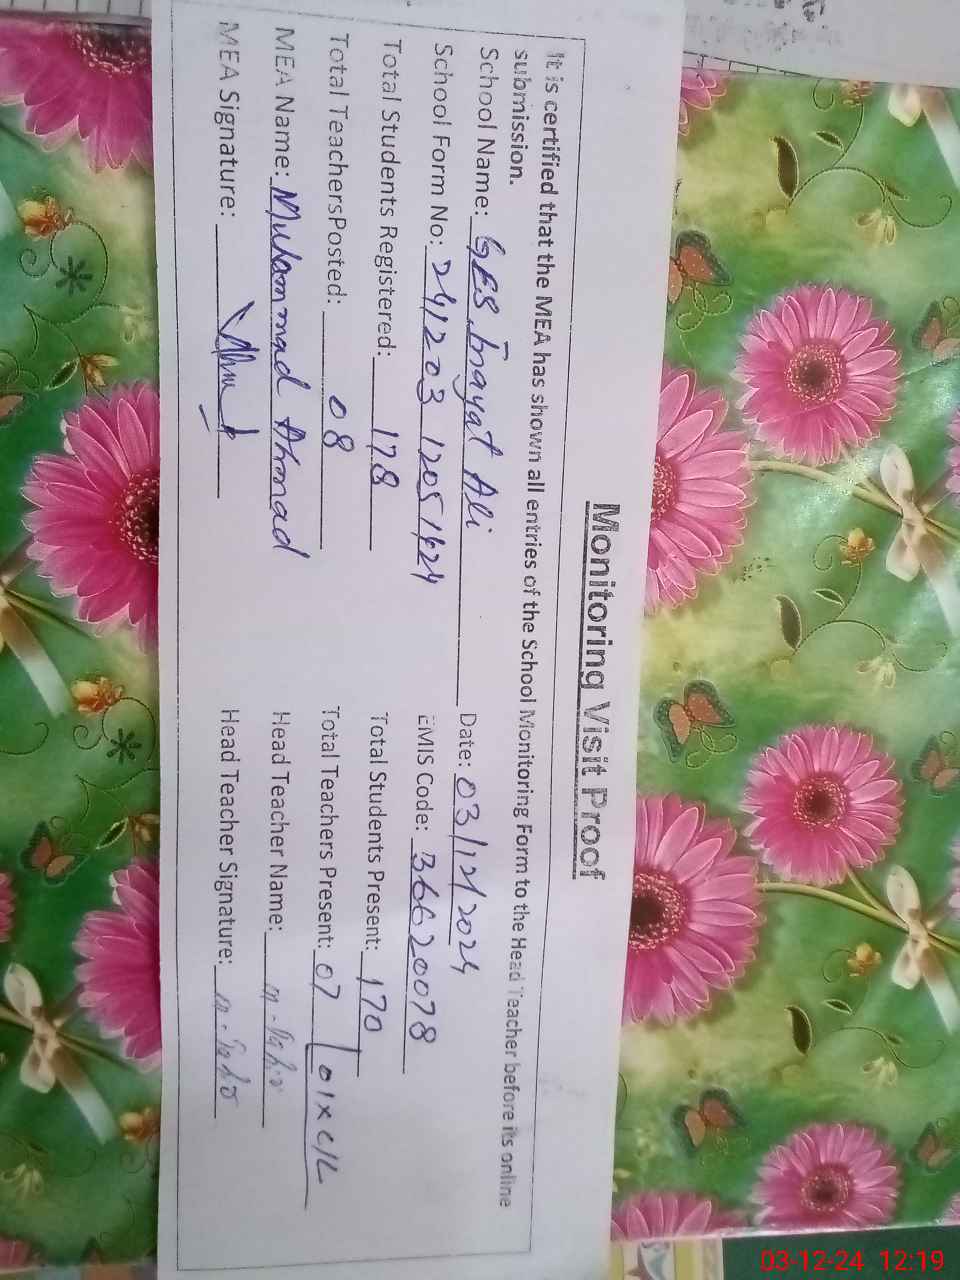 Monitoring Visit Proof
It is certified that the MEA has shown all entries of the School Monitoring Form to the Head Teacher before its online
submission.
School Name: GES Inayat Ali Date: 03/12/2024
School Form No: 241203 12051624 EMIS Code: 36620078
Total Students Registered: 178 Total Students Present: 170
Total TeachersPosted: 08 Total Teachers Present: 07 01 x C/L
MEA Name: Muhammad Ahmad Head Teacher Name:
MEA Signature: Head Teacher Signature:
03-12-24 12:19